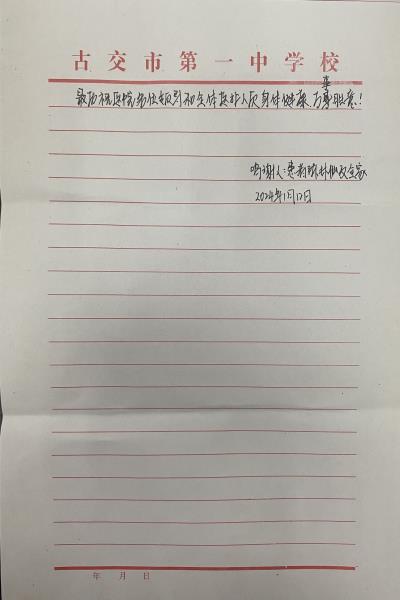 古交市第一中学校
最后祝医院各位领导和全体医护人员身体健康、万事胜意!
事
感谢人:
全家
2024年1月12日
年 月 日